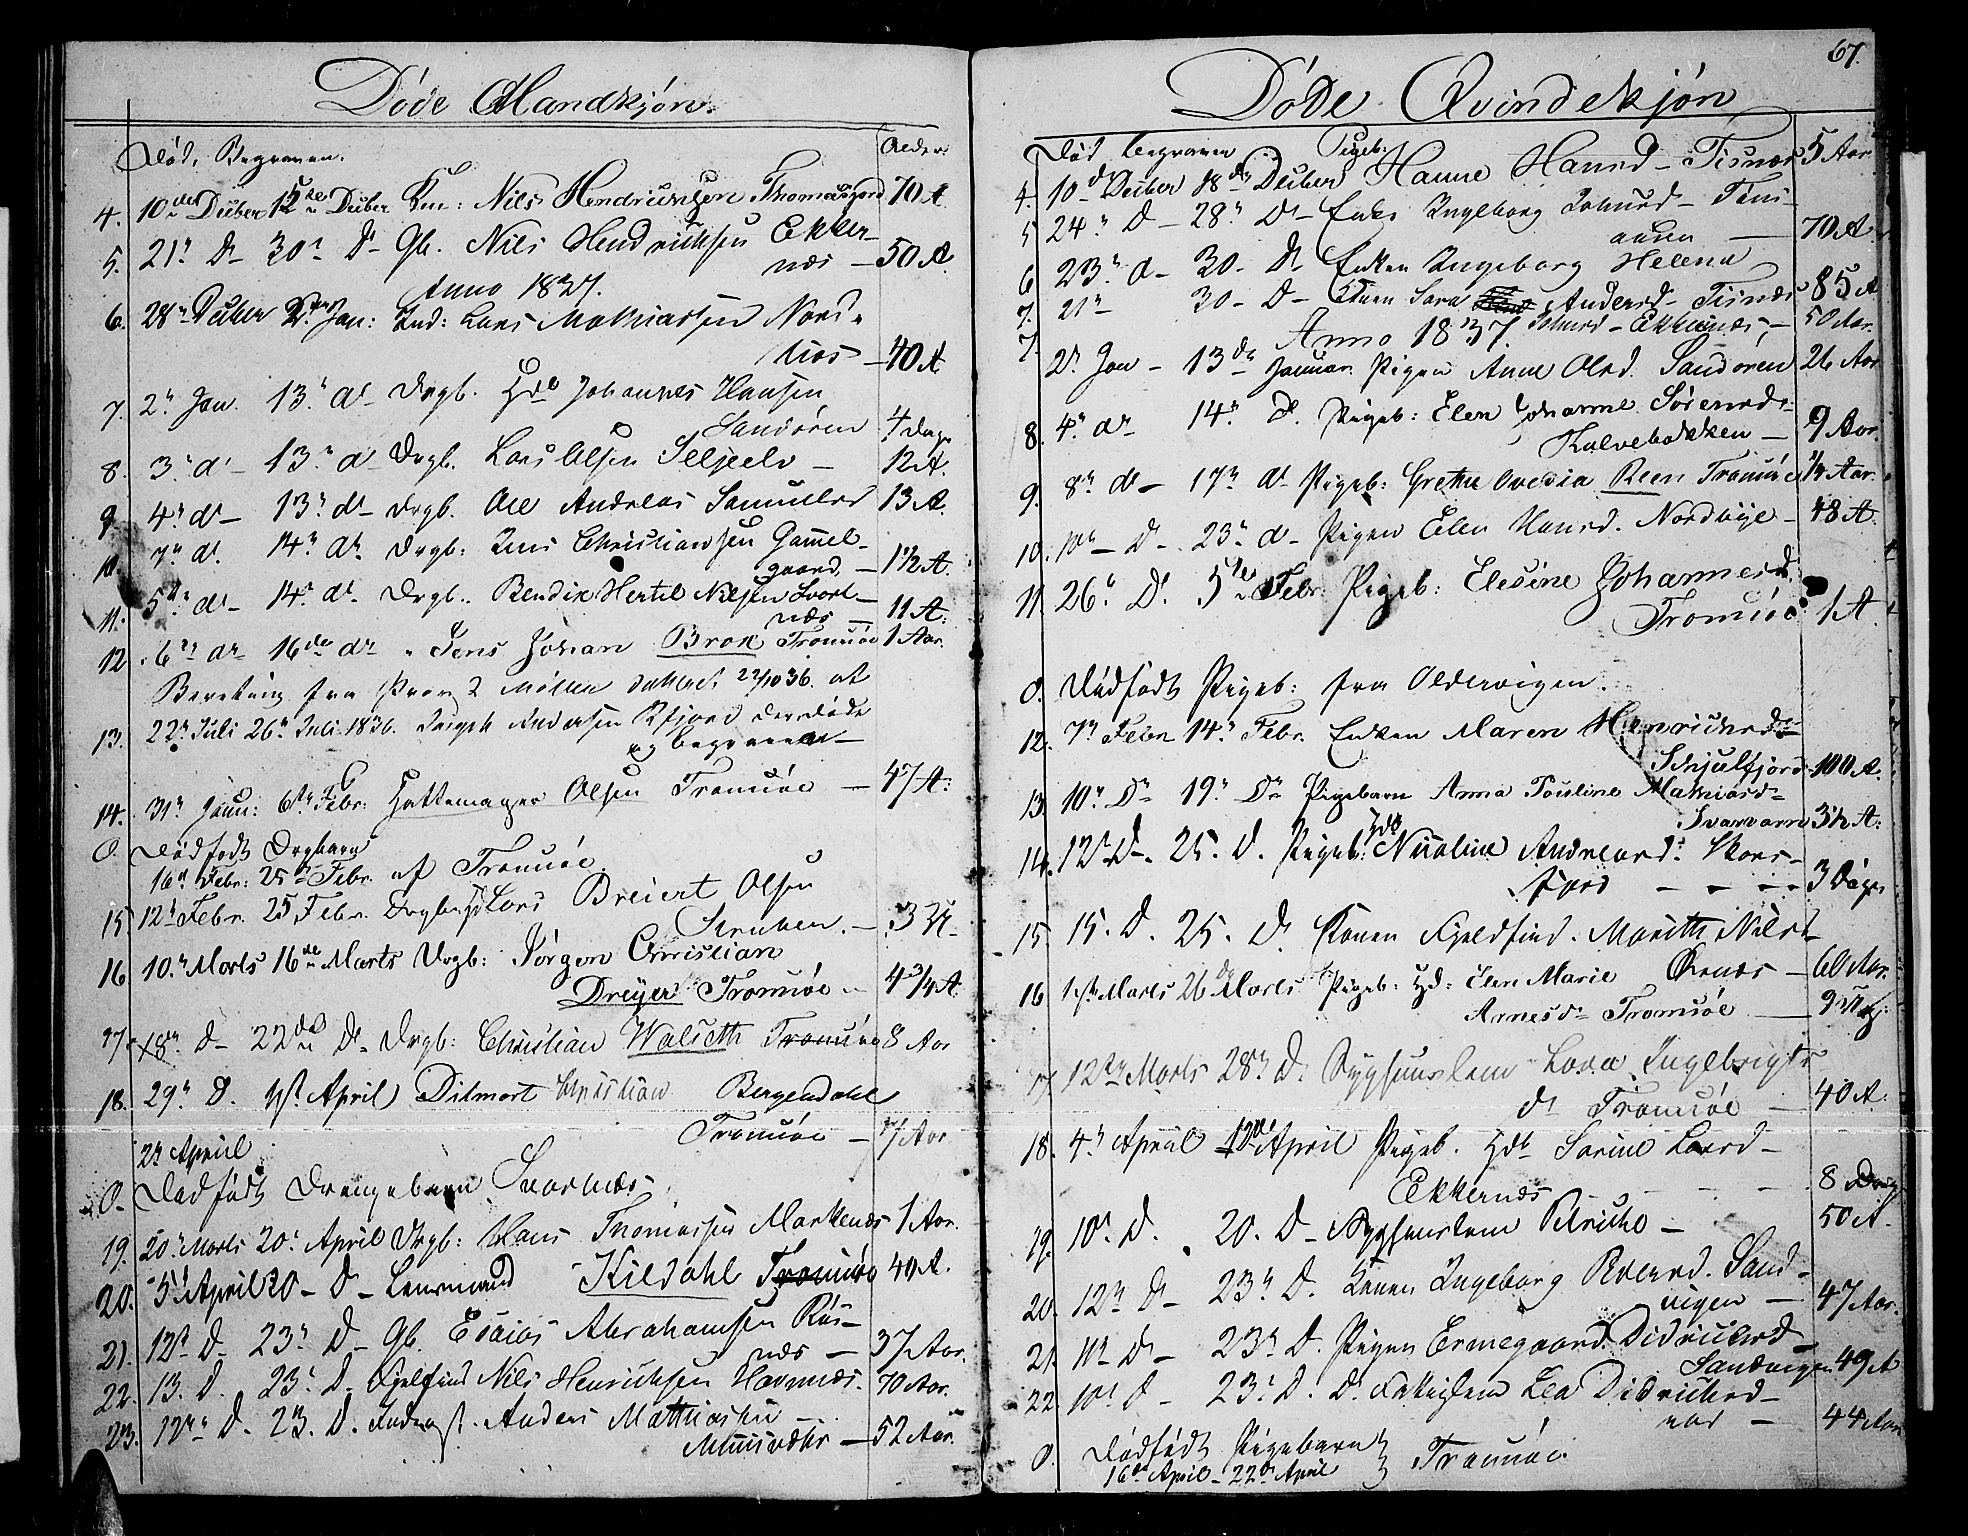 Døde Mandkjøn.
Død, Begraven. Alder:
4. 10de Decber 15de Decber Nils Hendrichsen Thomasjord 70 A.
5. 21d D 30d D Gb. Nils Hendrichsen Ekker-
næs — 50 A.
Anno 1837.
6. 28d Decber 2d Jan: Ind: Lars Mathiassen Nord-
40 A
7. 2d Jan. 13d d Drgb. Hdb Johannes Hansen
Sandøren 4 Dage
8. 3d d 13d d Drgb. Lars Olsen Seljeelv — 12 A.
9. 4d d — 13d d — Drgb. Ole Andreas Samuels 13 A.
10. 7d d. 14d d Drgb: Jens Christiansen Gammel-
gaard, — 1½ A.
11. 5d d — 14d d — Drgb. Bendix Hertel Nilsen Svart-
næs — 11 A:
12. 6d d 16de d Jens Johan Brox Tromsøe 1 Aar.
Beretning fra Møller 22/10 36. at
13. 22d Juli 26d Juli 1836. Andersen Kfjord Døde
og begraven
14. 31d Janu: 6te Febr: Hattemager Olsen Tromsøe — 47 A:
0. Dødfødt Drgbarn
16d Febr: 25d Febr. af Tromsøe
15. 12d Febr. 25 Febr. Drgb. Hd Lars Breiert Olsen
3
16. 10d Marts 16de Marts Drgb: Jørgen Christian
Dreyer Tromsøe — 4¾ A.
17. 18d D — 22de D. Drgb: Christian Walseth Tromsøe 8 Aar
18. 29d D. 1st April Ditmart Christian Bergendahl
Tromsøe — Aar
2d April
0. Dødfødt Drengebarn Svartnæs.
19. 20d Marts 20d April Drgb: Hans Thomassen Markenæs 1 Aar.
20. 5d April 20 — D — Lensmand Kildahl Tromsøe 40 A.
21. 12d D — 23d D — Gb. Esaias Abrahamsen Røs-
næs — 37 Aar.
22. 13. D. 23d D. Fjelfind Nils Henrichsen Havnnæs. 70 Aar.
23. 12d D. 23. D. Inderst. Anders Mathiassen
52 Aar.
67.
Døde Qvindekjøn
Død begraven
4. 10d Decber 18de Decber Pigeb. Hanne Hansd — Tisnæs 5 Aar
5 24d D — 28d D — Enke Ingeborg Johnsd — Tøns-
70 A
6 23d d — 30 — D Enken Ingeborg Helena
7. 21d 30 — D — Konen Sara Andersd — Tisnæs 85 A
Anno 1837. Johnsd — Ekkernæs, — 50 Aar.
7. 2d Jan — 13de Januar. Pigen Anne Olsd. Sandøren 26 Aar
8. 4d d 14d d. Pigeb: Elen Johanne Sørensd:
Kalvebakken — 9 Aar.
9. 8d d — 17d d Pigeb: Grethe Ovedia Reen Tromsøe ¼ Aar.
10. 10d — D — 23d d — Pigen Elen Hansd. Nordbye — 48 A.
11. 26d D. 5te Febr. Pigeb: Elesine Johannesd.
Tromsøe 1 A.
0. Dødfødt Pigeb: fra Oldervigen.
12. 7d Febr 14d Febr. Enken Maren Henrichsd
Skjulfjord 100 A.
13. 10d D 19d D Pigebarn Anna Pouline Mathiasd
Svarvarn 3½ A:
14. 12d D. 25. D. Pigeb: Hdb Nicoline Andreasd: Skars-
fjord — — — 3 Dage
15 15. D. 25. D. Konen Fjeldfind. Marith Nilsd
Ørnæs — 60 Aar.
16 1ste Marts 26de Marts Pigeb: Hd: Elen Marie
Arnesd Tromsøe — 9
17. 12de Marts 28d D. Sygehuuslem Lava Ingebrigts
d Tromsøe — 40 A.
18. 4d April 12de April Pigeb. Hdb Sarine Larsd —
Ekkernæs — — — 8 Dage
19. 10d D. 20. D — Sygehuuslem Pelriche — 50 A.
20. 12d D — 23d D. Konen Ingeborg Roersd. Sand-
vigen — 47 Aar.
21. 11d D — 23d D. Pigen Ermegaard Didrichsd
Sandvigen 49 A
22. 10d D — 23d D. D. Lea Didrichsd —
44 Aar
0. Dødfødt Pigebarn } Tromsøe
16de April — 22de April